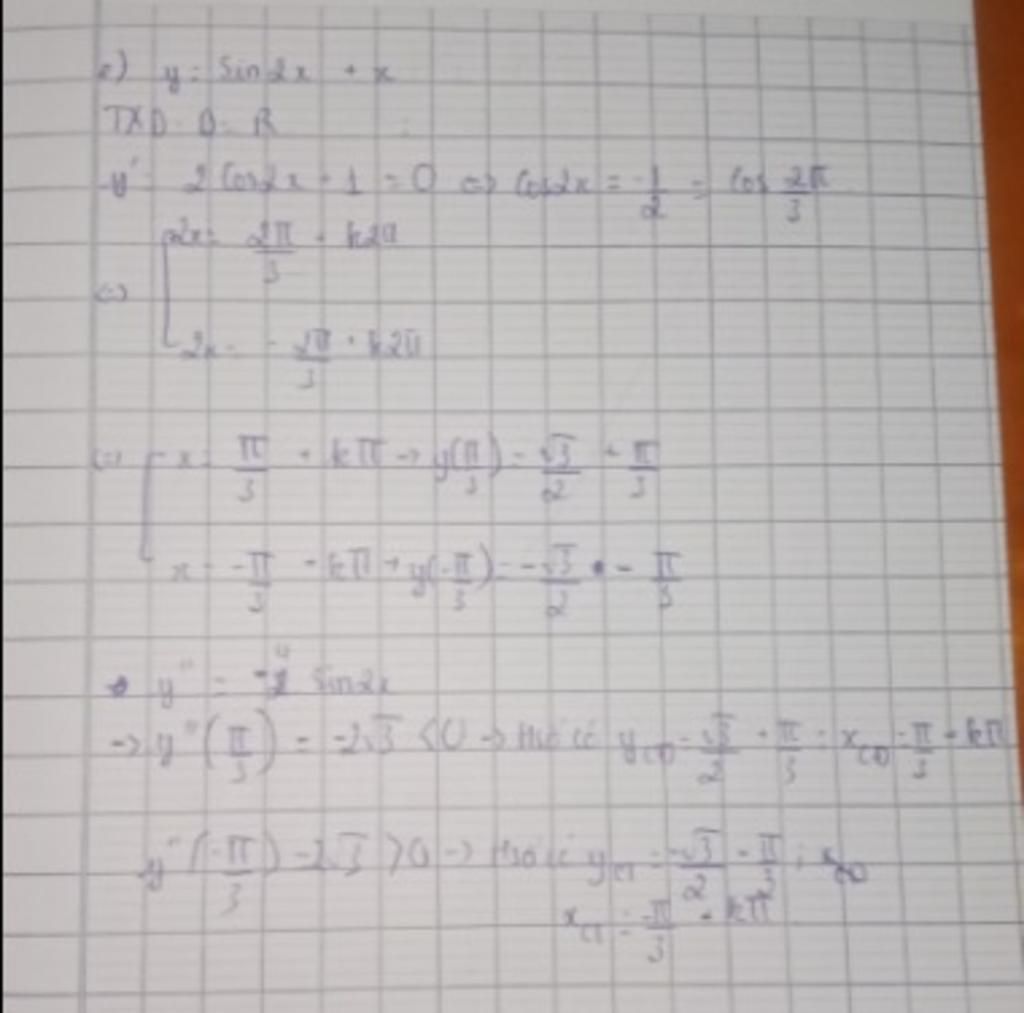 c) y = sin2x + x
TXD: D = R
y' = 2cos2x + 1 = 0 <=> cos2x = -1/2 = cos 2π/3
<=> [ 2x = 2π/3 + k2π
2x = - 2π/3 + k2π
<=> [ x = π/3 + kπ → y(π/3) = √3/2 + π/3
x = -π/3 + kπ → y(-π/3) = -√3/2 - π/3
y'' = -4 sin2x
→ y''(π/3) = -2√3 <0 → Hsố có yCD = √3/2 + π/3 ; xCD = π/3 + kπ
y''(-π/3) = 2√3 >0 → Hsố có yCT = -√3/2 - π/3 ;
xCT = -π/3 + kπ